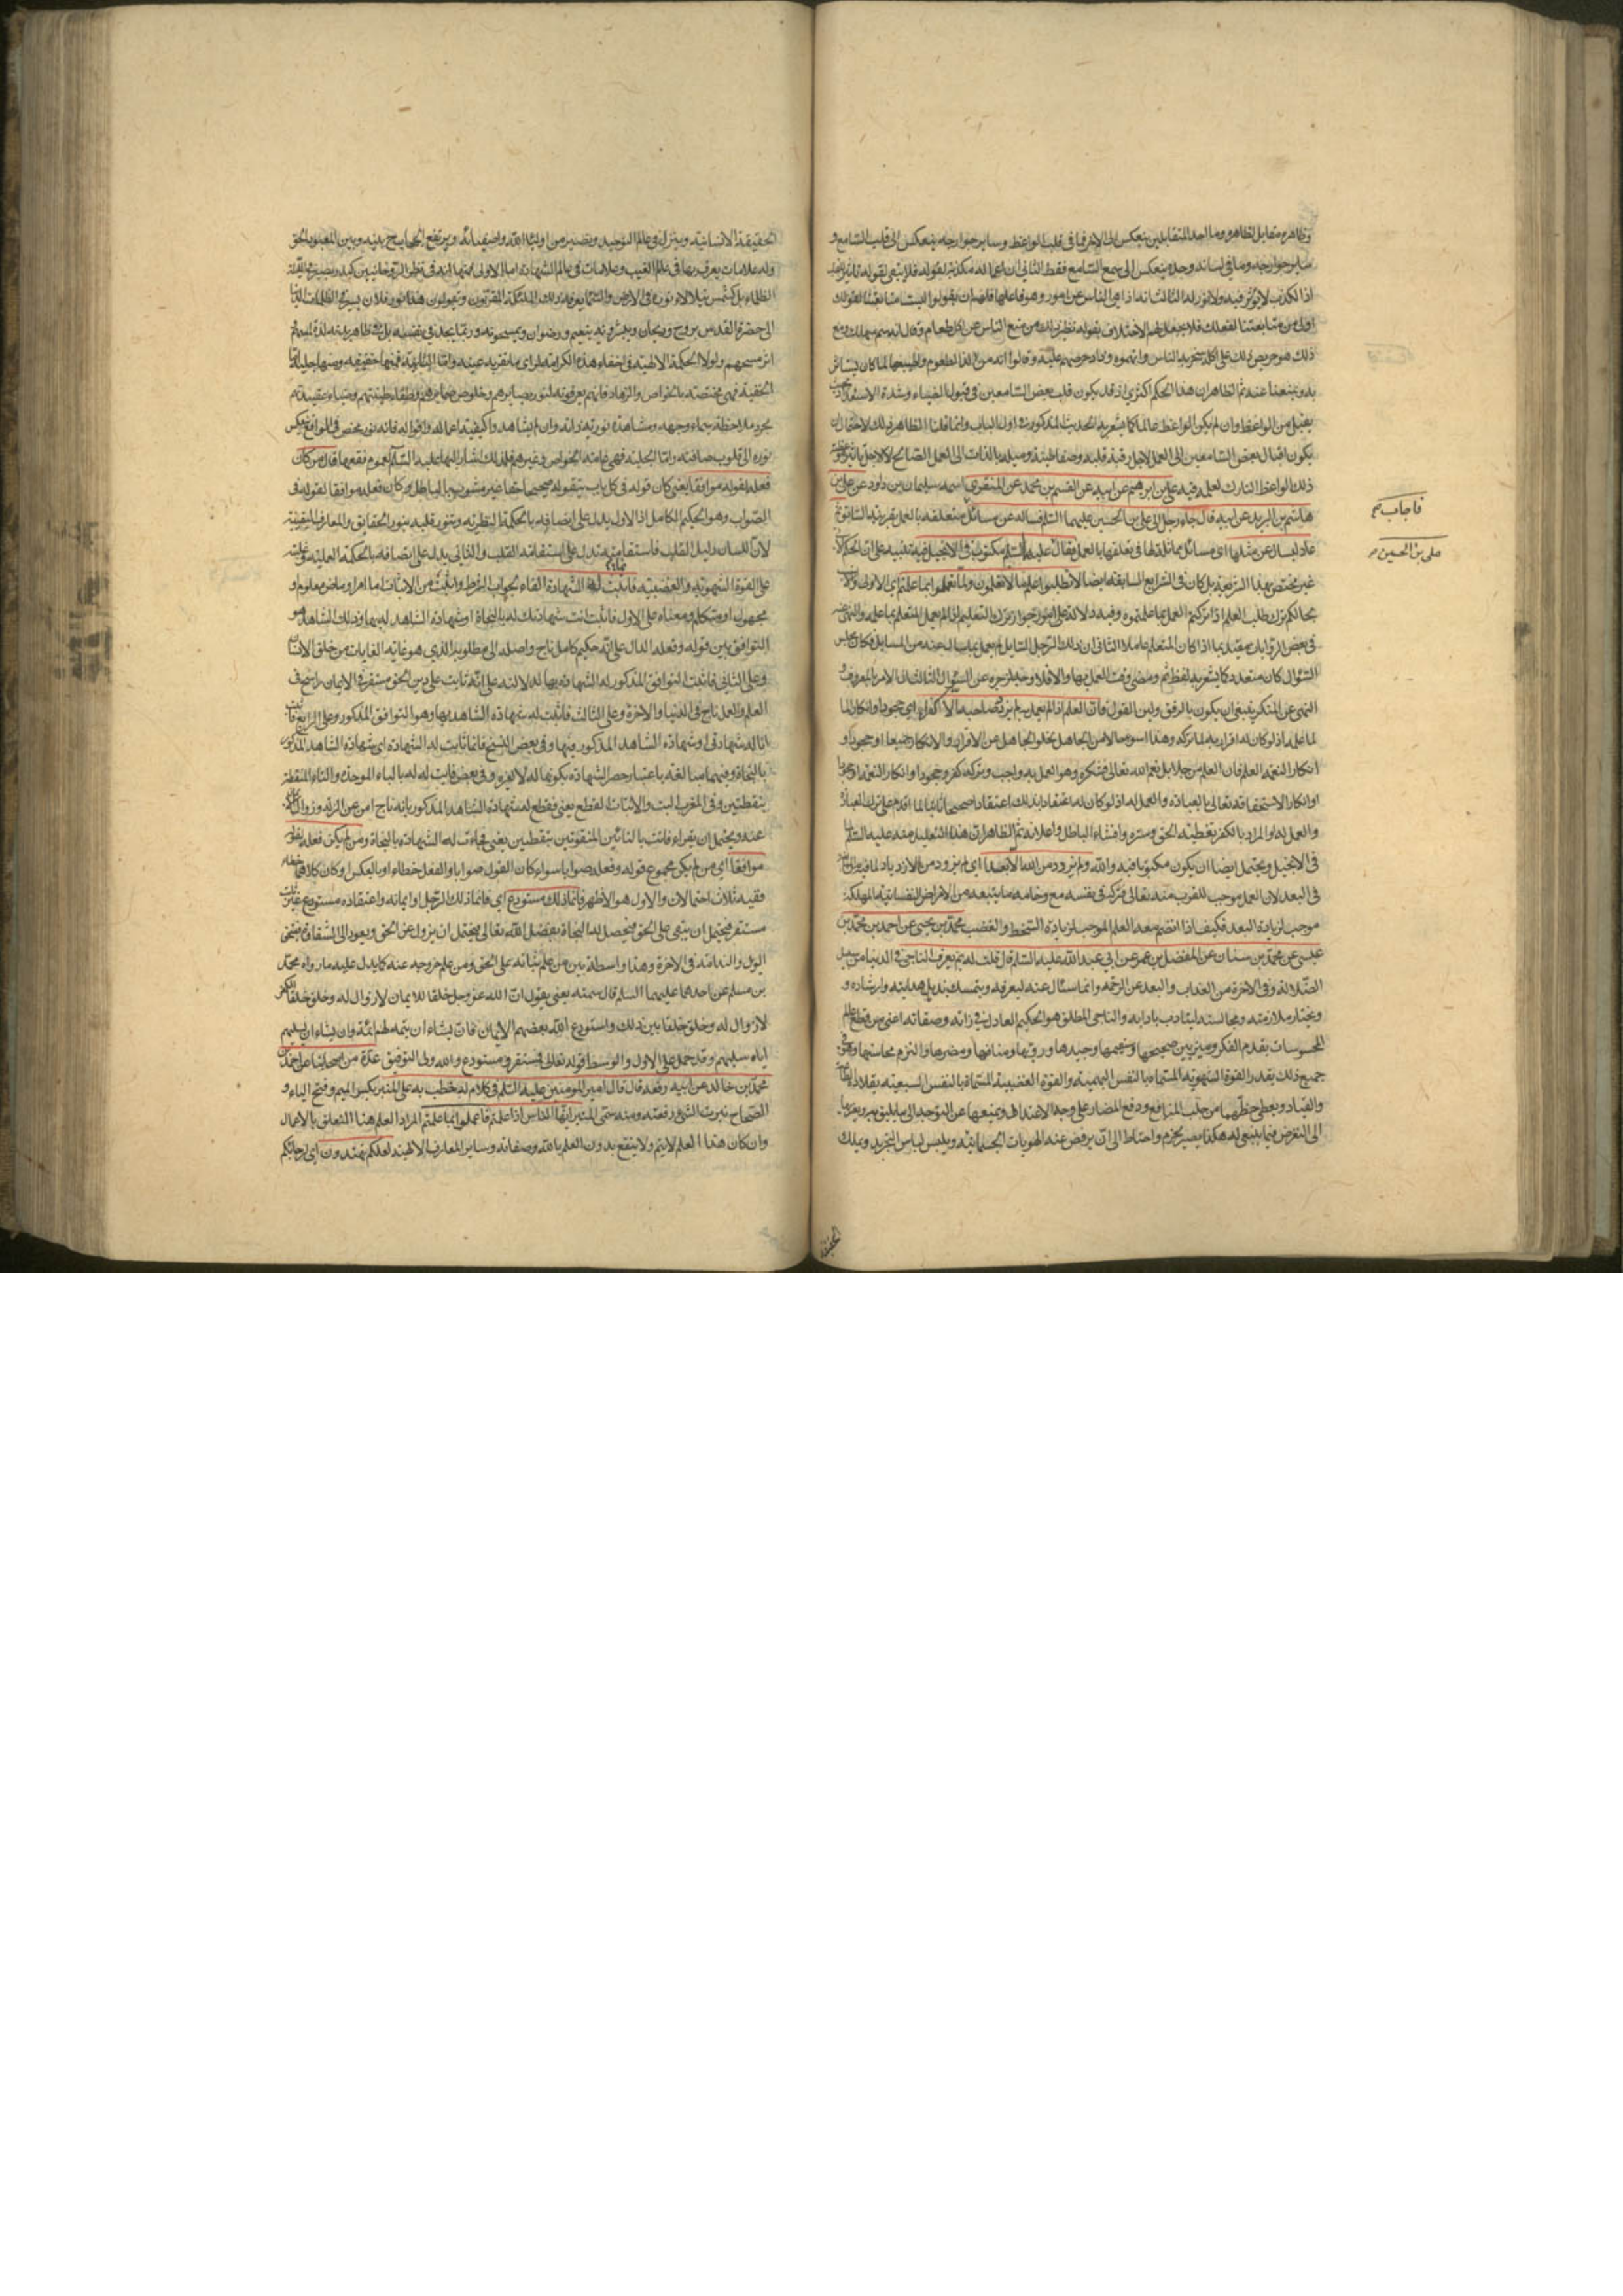 وظاهره مقابل لظاهره وما احد المتقابلين ينعكس الى الاخر فما فى قلب الواعظ وساير جوارحه ينعكس الى قلب السامع و
ساير جوارحه وما فى لسانه وحده ينعكس الى سمع السامع فقط الثانى ان اعماله مكذبة لقوله فلا يبقى لقوله تاثير
اذ الكذب لا يؤثر فيه ولا نور له الثالث انه اذا نهى الناس عن امور وهو فاعلها فلهم ان يقولوا ليست متابعتنا لقولك
اولى من متابعتنا لفعلك فلا يحصل لهم الاختلاف بقوله نظير ذلك من منع الناس عن اكل طعام وقال انه سم مهلك ومع
ذلك هو حريص على اكله سخر به الناس واتهموه وزاد حرصهم عليه وقالوا انه من الذ الاطعمة واطيبها لما كان يستاثر
به ويمنعنا عنه ثم الظاهر ان هذا الحكم اكثرى اذ قد يكون قلب بعض السامعين فى قبول الضياء وشدة الاستعداد بحيث
يقبل من الواعظ وان لم يكن الواعظ عاملا كما يشعر به الحديث المذكور فى اول الباب وانما قلنا الظاهر ذلك لاحتمال ان
يكون اقبال بعض السامعين الى العمل لاجل رقة قلبه وصفا طينته وميله بالذات الى العمل الصالح لا لاجل تاثير وعظ
ذلك الواعظ التارك لعلمه فيه على بن ابرهيم عن ابيه عن القسم بن محمد عن المنقرى اسمه سليمان بن داود عن على بن
هاشم بن البريد عن ابيه قال جاء رجل الى على بن الحسين عليهما السلم فساله عن مسائل متعلقة بالعمل بقرينة السابق ثم
عاد ليسال عن مثلها اى مسائل مماثلة لها فى تعلقها بالعمل فقال عليه السلم مكتوب فى الانجيل فيه تنبيه على ان الحكم
غير مختص بهذا الشريعة بل كان فى الشرايع السابقة ايضا لا تطلبوا علم ما لا تعلمون ولما تعملوا بما علمتم اى الاولى
بحالكم ترك طلب العلم اذا تركتم العمل بما علمتموه وفيه دلالة على جواز ترك التعليم اذا لم يعمل المتعلم بما علمه والنهى عنه
فى بعض الروايات مقيد بما اذا كان المتعلم عاملا الثانى ان ذلك الرجل السائل لم يعمل بما سال عنه من المسايل وكان مجلس
السؤال كان متعددا كما يشعر به لفظ ثم ومضى وقت العمل بها والا فلا وجه لزجره عن السؤال الثالث ان الامر بالمعروف و
النهى عن المنكر ينبغى ان يكون بالرفق ولين القول فان العلم اذا لم يعمل به لم يزدد صاحبه الا كفرا اى جحودا وانكارا لما
لما علمه اذ لو كان له اقرار به لما تركه وهذا اسوء حالا من الجاهل لخلو الجاهل عن الاقرار والانكار جميعا او جحودا و
انكار النعمة العلم فان العلم من جلايل نعم الله تعالى فشكره وهو العمل به واجب وتركه كفر وجحود او انكار النعمة
او انكار الاستحقاقه تعالى بالعبادة والعمل له اذ لو كان له اعتقاد بذلك اعتقادا صحيحا ثابتا لما اقدم على ترك العبادة
والعمل له او المراد بالكفر تغطية الحق وستره وافشاء الباطل واعلانه ثم الظاهر ان هذا التعليل منه عليه السلم
فى الانجيل ويحتمل ايضا ان يكون مكتوبا فيه والله ولم يزدد من الله الا بعدا اى لم يزدد من الازدياد
فى البعد لان العمل موجب للقرب منه تعالى فتركه فى نفسه مع وخامة ما يتبعه من الامراض النفسانية المهلكة
موجب لزيادة البعد فكيف اذا انضم معه العلم الموجب لزيادة السخط والغضب محمد بن يحيى عن احمد بن محمد بن
عيسى عن محمد بن سنان عن المفضل بن عمر عن ابى عبد الله عليه السلم قال قلت له بم يعرف الناجى فى الدنيا من سبيل
الضلالة وفى الاخرة من العذاب والبعد عن الرحمة وانما سئال عنه ليعرفه ويتمسك بذيل هدايته وارشاده و
ويختار ملازمته ومجالسته ليتادب بادابه والناجى المطلق هو الحكيم العادل فى ذاته وصفاته اعنى من قطع عالم
المحسوسات بقدم الفكر وميز بين صحيحها وسقيمها وجيدها ورديها ومنافعها ومضرها والتزم محاسنها
جميع ذلك بقدر القوة الشهوية المسماة بالنفس البهيمية والقوة الغضبية المسماة بالنفس السبعية بقلادة
والقياد ويعطى حظهما من جلب المنافع ودفع المضار على وجه الاعتدال ويمنعها عن التوجه الى ما يليق به
الى التعرض فيما ينبغى له هكذا يصير بحزم واحتياط الى ان يرفض عنه الهويات الجسمانية ويلبس لباس التجريد ويملك
فاجاب صح
على بن الحسين
الحقيقة
الحقيقة الانسانية وينزل فى عالم التوحيد ويصير من اولياء الله واصفيائه ويرتفع الحجاب بينه وبين المعبود الحق
وله علامات يعرف بها فى عالم الغيب وعلامات فى عالم الشهادة اما الاولى فمنها انه فى نظر الروحانيين
الظلماء بل كشمس يتلألأ نوره فى الارض والسما يعرفه بذلك الملئكة المقربون ويقولون هذا نور فلان يسير من الظلمات
الى حضرة القدس بروح وريحان ويبشرونه بنعيم ورضوان ويمسحونه وربما يجد فى نفسه بل فى ظاهر بدنه لذة
اثر مسحهم ولولا الحكمة الالهية فى اخفاء هذه الكرامة لراى ما تقر به عينه واما الثانية فمنها خفيفه ومنها جلية اما
الخفية فهى مختصة بالخواص والزهاد فانهم يعرفونه لنور بصايرهم وخلوص ضمايرهم وصفاء طينتهم وضياء عقيدتهم
بمجرد ملاحظة سماء وجهه ومشاهدة نورية ذاته وان لم يشاهدوا كيفية اعماله واقواله فانه نور محض فى الواقع ينعكس
نوره الى قلوب صافية واما الجلية فهى عامة الخواص وغيرهم فلذلك اشار اليها عليه السلم لعموم نفعها قال من كان
فعله لقوله موافقا يعنى كان قوله فى كل باب يتقوله صحيحا خالصا غير مشوب بالباطل وكان فعله موافقا لقوله فى
الصواب وهو الحكيم الكامل اذ الاول يدل على اتصافه بالحكمة النظرية وتنور قلبه بنور الحقايق والمعارف اليقينية
لان اللسان دليل القلب فاستقامته تدل على استقامة القلب والثانى يدل على اتصافه بالحكمة العملية وغلبته
على القوة الشهوية والغضبية فاثبت له الشهادة الفاء لجواب الشرط واثبت من الاثبات اما امر او ماض معلوم او
مجهول او متكلم ومعناه على الاول فاثبت انت شهادتك له بالنجاة او شهادة الشاهد له بها وذلك الشاهد هو
التوافق بين قوله وفعله الدال على انه حكيم كامل ناج واصله الى مطلوبه الذى هو غاية الغايات من خلق الانسان
وعلى الثانى فاثبت التوافق المذكور له الشهادة بها لدلالته على انه ثابت على دين الحق مستقر فى الايمان راسخ فى
العلم والعمل ناج فى الدنيا والاخرة وعلى الثالث فاثبت له شهادة الشاهد بها وهو التوافق المذكور وعلى الرابع فاثبت
انا له شهادتى او شهادة الشاهد المذكور فيها وفى بعض النسخ فانما ثابت له الشهادة اى شهادة الشاهد المذكور
بالنجاة وفيهما مبالغة باعتبار حصر الشهادة بكونها له لا لغيره وفى بعض فابت له بالباء الموحدة والتاء المنقطة
بنقطتين وفى المغرب البت والابتات القطع يعنى فقطع له شهادة الشاهد المذكور بانه ناج امن عن الزلة وزوال
عنه ويحتمل ان يقراء فاتت بالتائين المنقوتين بنقطتين يعنى فجاءت له الشهادة بالنجاة ومن لم يكن فعله لقوله
موافقا اى من لم يكن مجموع قوله وفعله صوابا سواء كان القول صوابا والفعل خطاء او بالعكس او كان كلاهما خطاء
ففيه ثلاث احتمالات والاول هو الاظهر فانما ذلك مستودع اى فانما ذلك الرجل او ايمانه واعتقاده مستودع غير ثابت
مستقر فيحتمل ان يبقى على الحق فيحصل له النجاة بفضل الله تعالى ويحتمل ان يزول عن الحق ويعود الى الشقاق فيستحق
الويل والندامة فى الاخرة وهذا واسطة بين من علم ثباته على الحق ومن علم خروجه عنه كما يدل عليه ما رواه محمد
بن مسلم عن احدهما عليهما السلم قال سمعته يعنى يقول ان الله عز وجل خلق خلقا للايمان لا زوال له وخلق خلقا للكفر
لا زوال له وخلق خلقا بين ذلك واستودع الله بعضهم الايمان فان يشاء ان يتمه لهم اتمه وان يشاء ان يسلبهم
اياه سلبهم وقد حمل على الاول والوسط قوله تعالى فمستقر ومستودع والله ولى التوفيق عدة من اصحابنا عن احمد بن
محمد بن خالد عن ابيه رفعه قال قال امير المومنين عليه السلم فى كلام له خطب به على المنبر بكسر الميم وفتح الباء و
الصحاح نبرت الشئ رفعته ومنه سمى المنبر ايها الناس اذا علمتم فاعملوا بما علمتم المراد العلم هنا المتعلق بالاعمال
وان كان هذا العلم لا يتم ولا ينتفع بدون العلم بالله وصفاته وساير المعارف الالهية لعلكم تهتدون اى لرجائكم